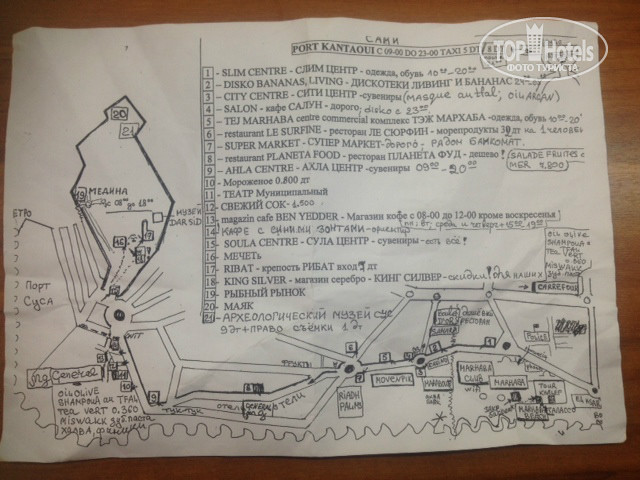 САМИ
PORT KANTAOUI С 09-00 DO 23-00 TAXI 5 DT
TOP Hotels
ФОТО ТУРИСТА
1 - SLIM CENTRE - СЛИМ ЦЕНТР - одежда, обувь 10⁰⁰-20⁰⁰
2 - DISKO BANANAS, LIVING - ДИСКОТЕКИ ЛИВИНГ И БАНАНАС
3 - CITY CENTRE - СИТИ ЦЕНТР -сувениры (masque anttal, oil ARGAN)
4 - SALON - кафе САЛУН - дорого; disko с 23⁰⁰
5 - TEJ MARHABA centre commercial комплекс ТЭЖ МАРХАБА -одежда, обувь 10⁰⁰-20⁰⁰
6 - restaurant LE SURFINE - ресторан ЛЕ СЮРФИН - морепродукты 30 дт на 1 человек
7 - SUPER MARKET - СУПЕР МАРКЕТ-дорого; рядом банкомат.
8 - restaurant PLANETA FOOD - ресторан ПЛАНЕТА ФУД - дешево! (SALADE FRUITES с MER 7.800)
9 - AHLA CENTRE - АХЛА ЦЕНТР -сувениры 09⁰⁰ - 20⁰⁰
10 - Мороженое 0.800 дт
11 - ТЕАТР Муниципальный
12 - СВЕЖИЙ СОК- 1,500
13 - magazin cafe BEN YEDDER - Магазин кофе с 08-00 до 12-00 кроме воскресенья
пн; вт; среда и четверг +15⁰⁰
14 - КАФЕ С СИНИМИ ЗОНТАМИ-ориентир
15 - SOULA CENTRE - СУЛА ЦЕНТР - сувениры -есть всё!
16 - МЕЧЕТЬ
17 - RIBAT - крепость РИБАТ вход 7 дт
18 - KING SILVER - магазин серебро - КИНГ СИЛВЕР -скидки! для наших
19 - РЫБНЫЙ РЫНОК
20 - МАЯК
21 - АРХЕОЛОГИЧЕСКИЙ МУЗЕЙ СУС
9дт+ПРАВО СЪЁМКИ 1 дт
OIL OLIVE
SHAMPOUA
TFAL
TEA VERT
0.360
CARREFOUR
20
21
МЕДИНА
19
до 18⁰⁰
МУЗЕЙ
DAR SID
16
17
МЕТРО
Порт
Суса
mg General
OIL OLIVE
SHAMPOUA au TFAL
TEA VERT 0.360
MISWAKK зуб паста
ХАЛВА, финики
10
9
ТУК ТУК
отели
GENERAL
mg
отели
ФРУКТЫ
8
6
5
1
RIADH
PALMS
MOVENPIK
MARHABA
CLUB
wifi
MARHABA
Police
TOUR
KHALEF
MARHABA
BEACH
TABACCO
EL MOU